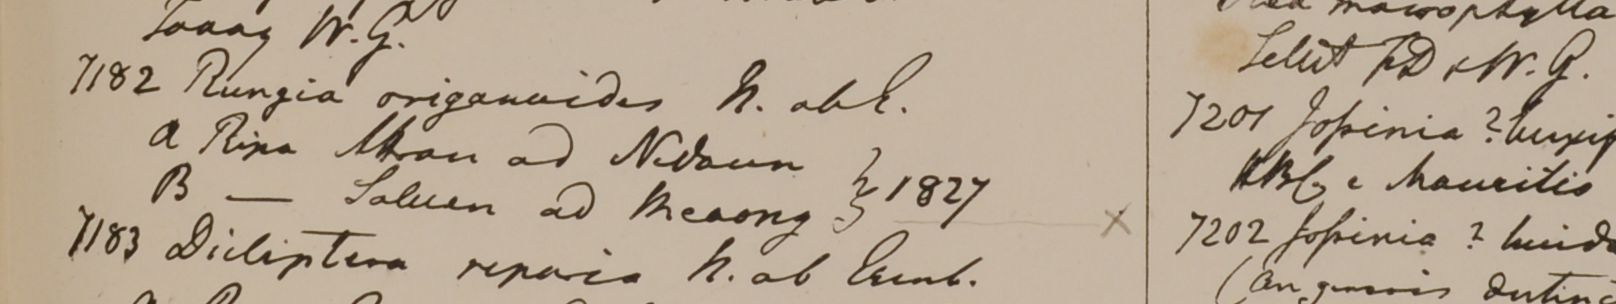 Tavoy W. G.
7182 Rungia origanoides N. ab E.
a Ripa Attran ad Nidaun
B — Saluen ad Meaong } 1827
7183 Dicliptera riparia N. ab Esenb.
macrophylla
Silhet FD & W. G.
7201 Josinia ?
HBC e Mauritio
7202 Josinia ?
(An generis